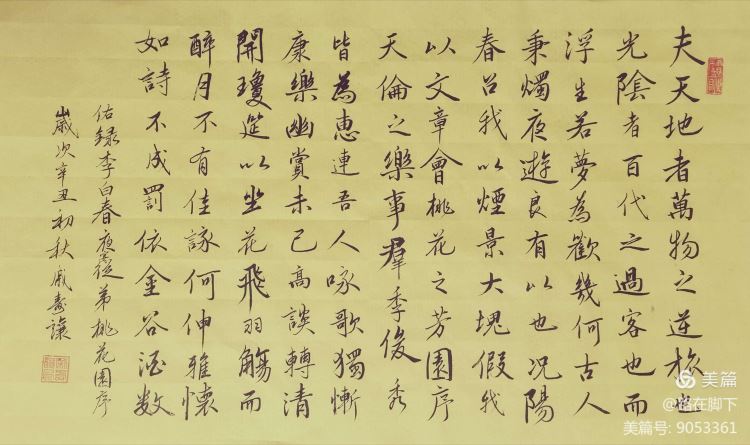 夫天地者萬物之逆旅也
光陰者百代之過客也而
浮生若夢為歡幾何古人
秉燭夜遊良有以也況陽
春召我以煙景大塊假我
以文章會桃花之芳園序
天倫之樂事羣季俊秀
皆為惠連吾人咏歌獨慚
康樂幽賞未已高談轉清
開瓊筵以坐花飛羽觴而
醉月不有佳詠何伸雅懷
如詩不成罰依金谷酒数
佑錄李白春夜從弟桃花園序
歲次辛丑初秋戚壽讓
美篇
@路在脚下
美篇号: 9053361